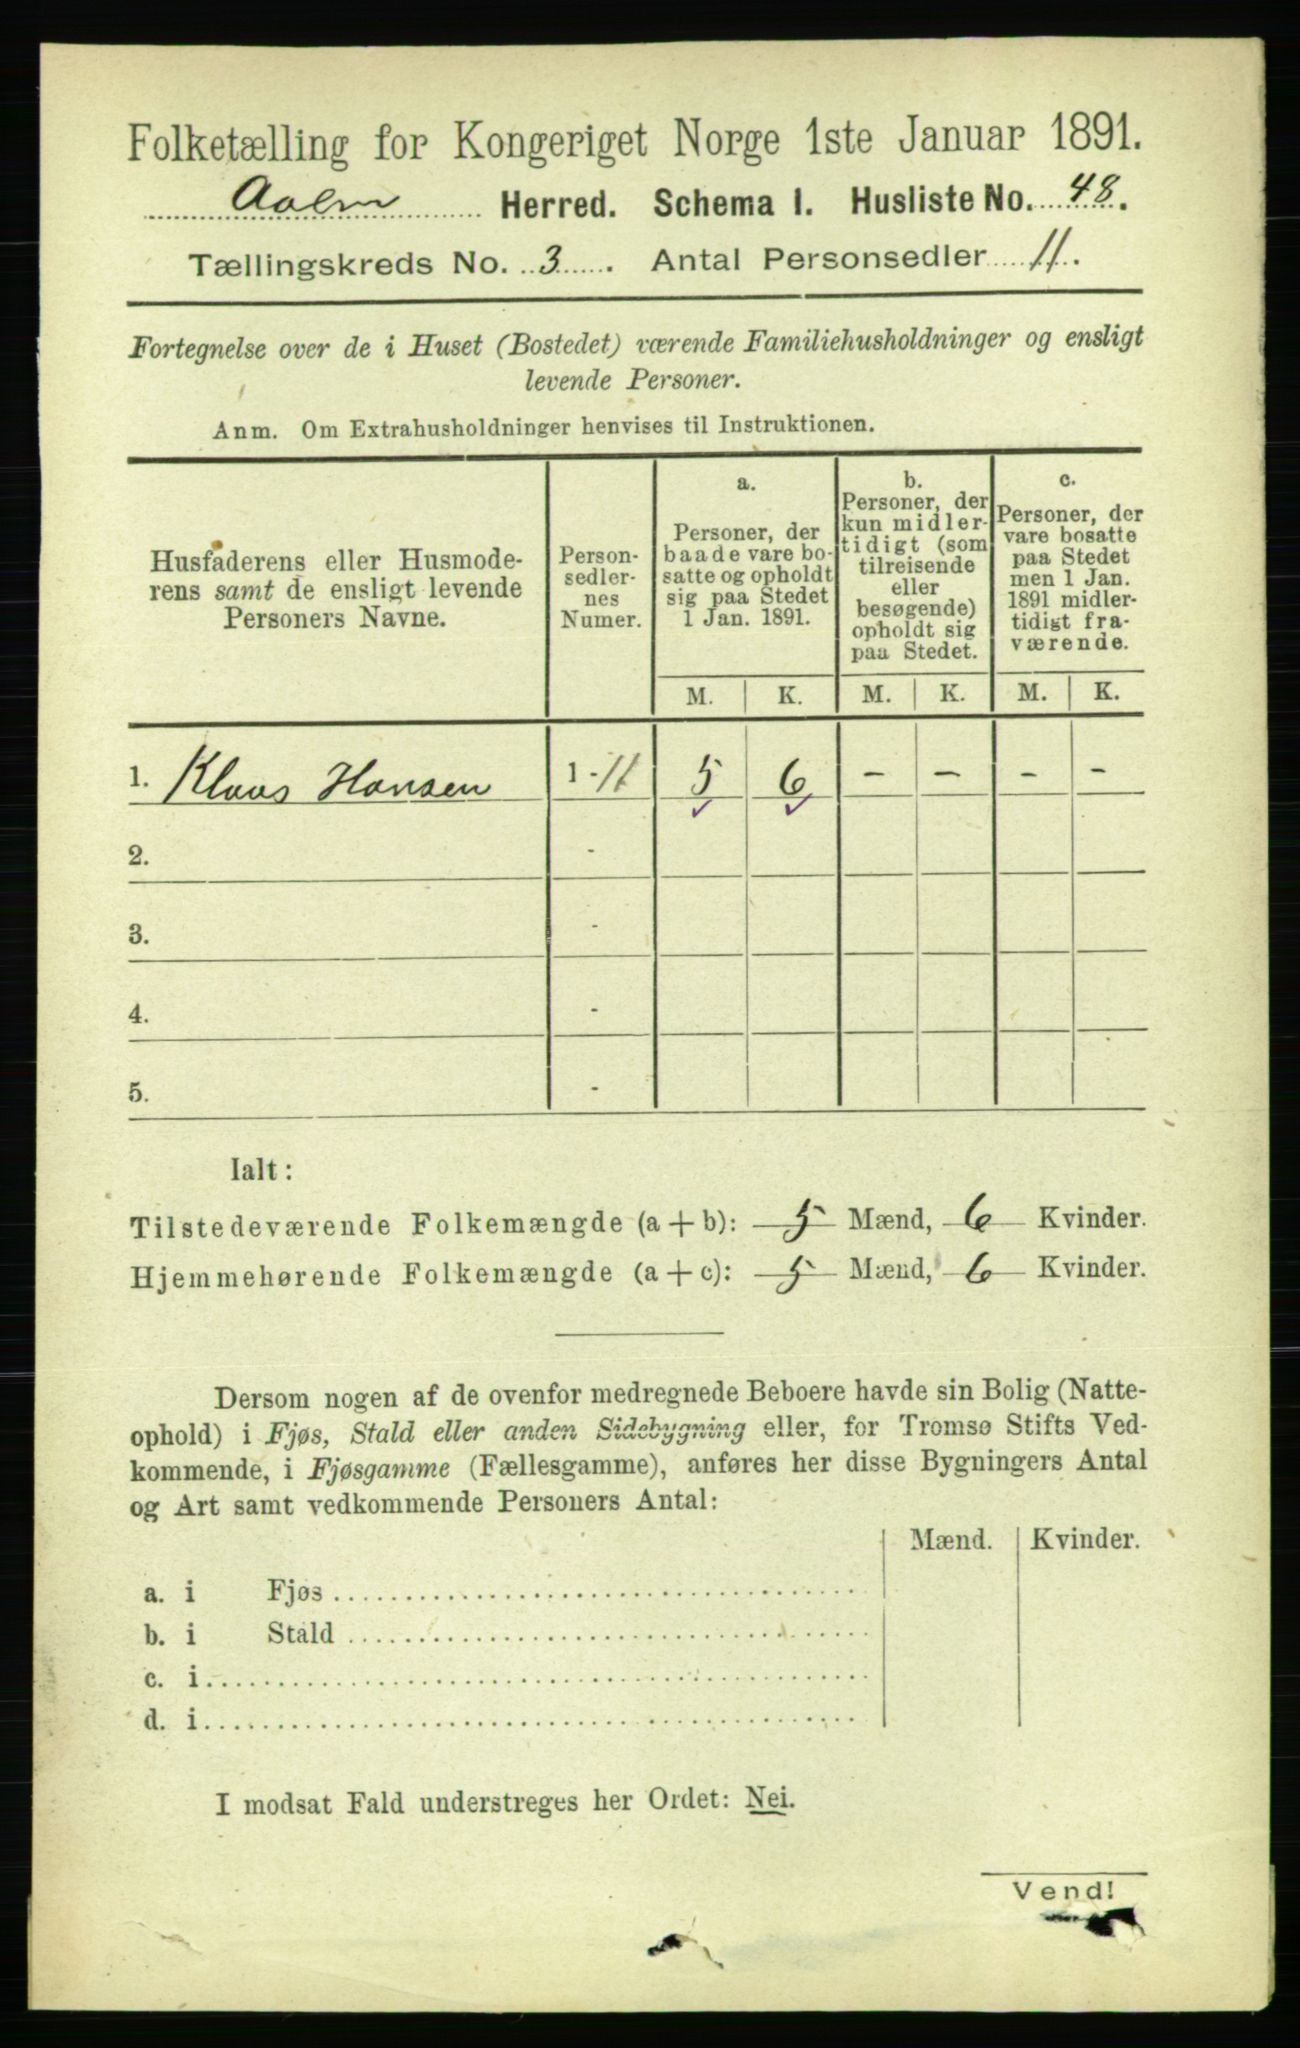 Folketælling for Kongeriget Norge 1ste Januar 1891.
Herred. Schema 1. Husliste No. 48.
Tællingskreds No. 3. Antal Personsedler 11.
Fortegnelse over de i Huset (Bostedet) værende Familiehusholdninger og ensligt
levende Personer.
Anm. Om Extrahusholdninger henvises til Instruktionen.
Husfaderens eller Husmode-
rens samt de ensligt levende
Personers Navne.
Person-
sedler-
nes
Numer.
a.
Personer, der
baade vare bo-
satte og opholdt
sig paa Stedet
1 Jan. 1891.
b.
Personer, der
kun midler-
tidigt (som
tilreisende
eller
besøgende)
opholdt sig
paa Stedet.
c.
Personer, der
vare bosatte
paa Stedet
men 1 Jan.
1891 midler-
tidigt fra-
værende.
M. K. M. K. M. K.
1. Klaus Hansen 1 - 11 5 6 - - - -
2. -
3. -
4. -
5. -
Ialt:
Tilstedeværende Folkemængde (a + b): 5 Mænd, 6 Kvinder.
Hjemmehørende Folkemængde (a + c): 5 Mænd, 6 Kvinder.
Dersom nogen af de ovenfor medregnede Beboere havde sin Bolig (Natte-
ophold) i Fjøs, Stald eller anden Sidebygning eller, for Tromsø Stifts Ved-
kommende, i Fjøsgamme (Fællesgamme), anføres her disse Bygningers Antal
og Art samt vedkommende Personers Antal:
Mænd. Kvinder.
a. i Fjøs
b. i Stald
c. i
d. i
I modsat Fald understreges her Ordet: Nei.
Vend!